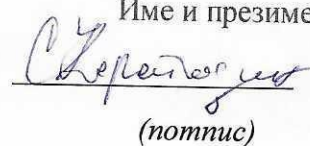 Име и презиме
(потпис)